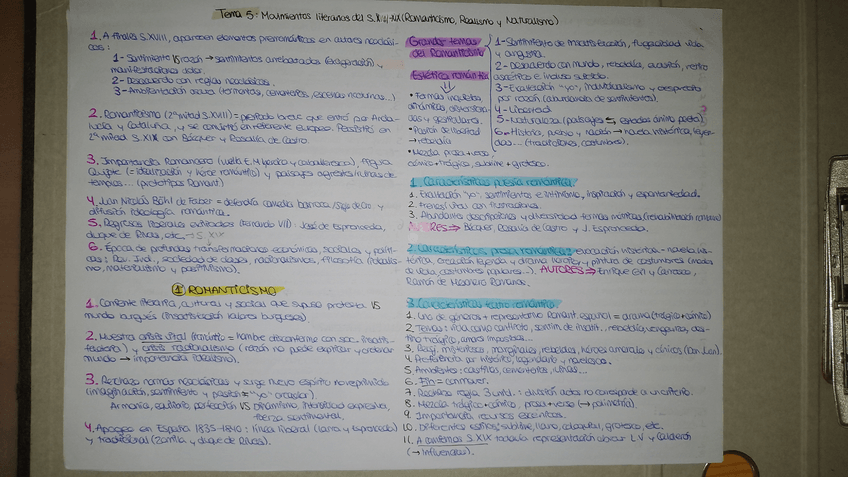 Tema 5: Movimientos literarios del S.XIX (Romanticismo, Realismo y Naturalismo)
1. A finales S.XVIII, aparecen elementos prerrománticos en autores
1- Sentimiento VS razón → sentimientos arrebatados (exageración) y
manifestaciones dolor.
2- Desacuerdo con reglas neoclásicas.
3- Ambientación oscura (tormentas, cementerios, escenas nocturnas...)
2. Romanticismo (2ª mitad S.XVIII) = periodo breve que entró por Anda-
lucía y Cataluña, y se convirtió en referente europeo. Persistió en
2ª mitad S.XIX con Bécquer y Rosalía de Castro.
3. Importancia Romancero (vuelta E.Media y caballeresco), figura
Quijote (= idealización y héroe romántico) y paisajes agrestes/ruinas de
templos... (prototipos Romant)
4. Juan Nicolás Böhl de Faber = defendía comedia barroca
difusión ideología romántica.
5. Regresos liberales exiliados (Fernando VII): José de Espronceda,
duque de Rivas, etc. → S.XIX
6. Época de profundas transformaciones económicas, sociales y polí-
ticas: Rev. Ind., sociedad de clases, nacionalismos, filosofía (idealis-
mo, materialismo y positivismo).
1 ROMANTICISMO
1. Corriente literaria, cultural y social que supuso protesta VS
mundo burgués (insatisfacción valores burgueses).
2. Muestra crisis vital (romántico = hombre disconforme con soc. insatis-
factoria) y crisis racionalismo (razón no puede explicar y ordenar
mundo → importancia idealismo).
3. Rechazo normas neoclásicas y surge nuevo espíritu no reprimido
(imaginación, sentimiento y pasión = "yo" creador)
Armonía, equilibrio, perfección VS dinamismo, intensidad expresiva,
fuerza sentimental.
4. Apogeo en España 1835-1840: línea liberal (Larra y Espronceda)
y tradicional (Zorrilla y duque de Rivas).
Grandes temas
del Romanticismo
1- Sentimiento de insatisfacción, fugacidad vida
y angustia.
2- Desacuerdo con mundo, rebeldía, evasión, retiro
ascético e incluso suicidio.
3- Exaltación "yo", individualismo y desprecio
por razón (abundancia de sentimientos)
4- Libertad
5- Naturaleza (paisajes ⇆ estados ánimo poeta)
6- Historia, pueblo y nación → novela histórica, leyen-
das... (tradiciones, costumbres).
Estética romántica
• Formas inquietas,
dinámicas,
• Pasión de libertad
→
• Mezcla prosa + verso,
cómico + trágico, sublime + grotesco.
1. Características poesía romántica:
1. Exaltación "yo", sentimientos e intimismo, inspiración y espontaneidad.
2. Frenesí vital con frustraciones.
3. Abundante descripciones y diversidad formas métricas
AUTORES ⇒ Bécquer, Rosalía de Castro y J. Espronceda.
2. Características prosa romántica: evocación histórica - novela his-
tórica, creación leyenda y drama heroico y pintura de costumbres (modos
de vida, costumbres populares...). AUTORES ⇒ Enrique Gil y Carrasco,
Ramón de Mesonero Romanos.
3. Características teatro romántico.
1. Uno de géneros + representativo Romant. español = drama (trágico + cómico)
2. Temas: vida como conflicto, sentim. de insatif., rebeldía, venganza, des-
tino trágico, amores imposibles...
3. Pers. misteriosos, marginales, rebeldes, héroes amorales y cínicos (Don Juan).
4. Preferencia por histórico, legendario y novelesco.
5. Ambientes: castillos, cementerios, ruinas...
6. Fin = conmover.
7. Rechazo regla 3 unid.: división actos no corresponde a un criterio.
8. Mezcla trágico + cómico, prosa + verso (→ polimetría)
9. Importancia recursos escénicos.
10. Diferentes estilos: sublime, llano, coloquial, grotesco, etc.
11. A comienzos S.XIX todavía representación obras L.V y Calderón
(→ influencias).